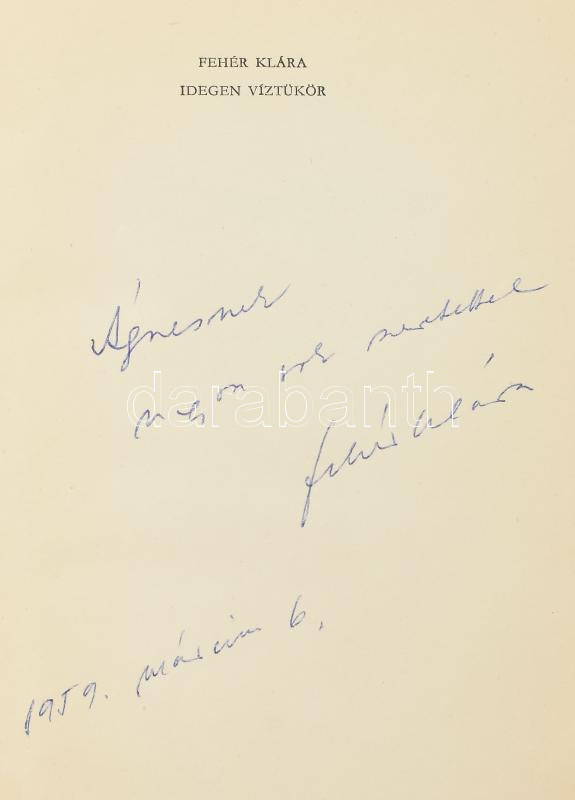 FEHÉR KLÁRA
IDEGEN VÍZTÜKÖR
Ágnesnek
nagyon sok szeretettel
Fehér Klára
darabanth
1959. március 6.